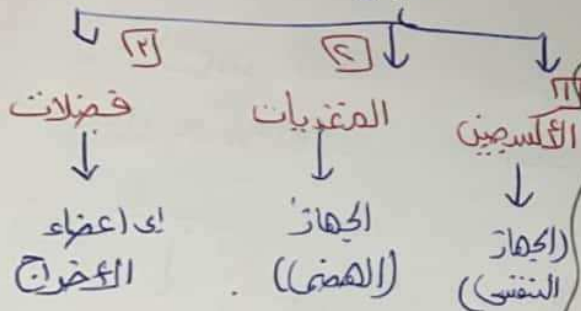 ١
الأكسجين
(الجهاز
التنفسي)
٢
المتغذيات
الجهاز
(الهضمي)
٣
فضلات
إلى اعضاء
الأخراج